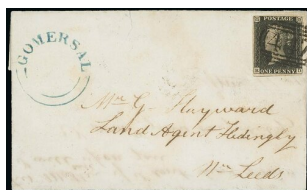 GOMERSAL
POSTAGE
ONE PENNY
Mr G. Hayward
Land Agent Hedingly
Nr Leeds